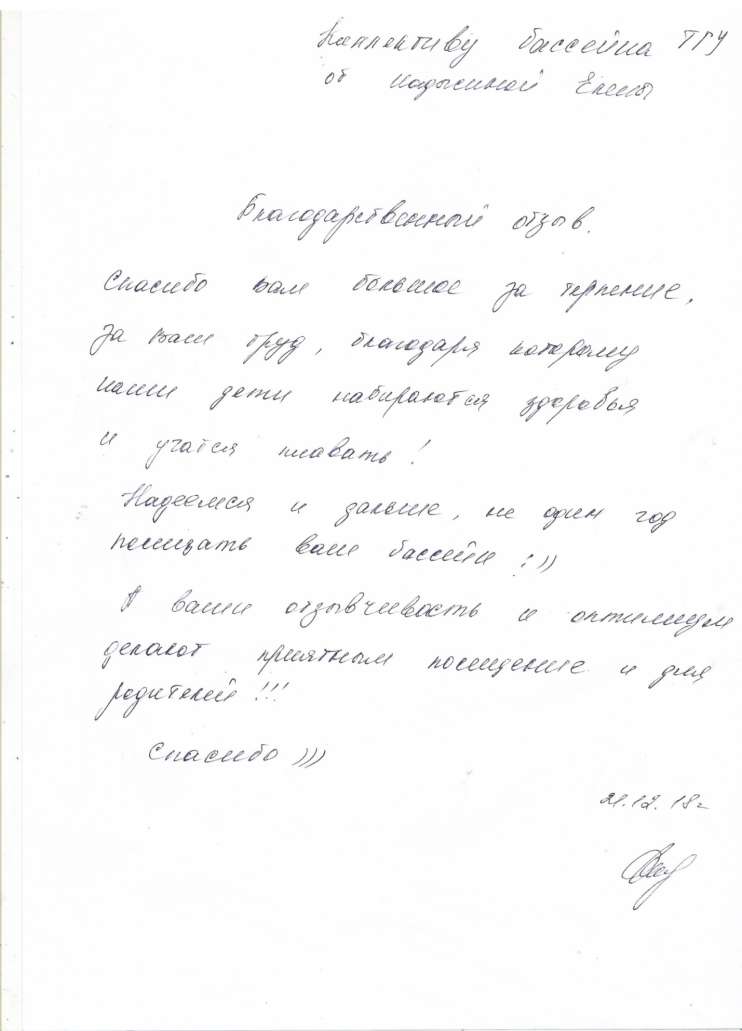 Коллективу бассейна ТГУ
от Елены
Благодарственный отзыв.
Спасибо вам большое за терпение,
за ваш труд, благодаря которому
наши дети набираются здоровья
и учатся плавать!
Надеемся и дальше, не один год
посещать ваш бассейн :))
А ваши отзывчивость и оптимизм
делают приятным посещение и для
родителей!!!
Спасибо )))
21.12.18г